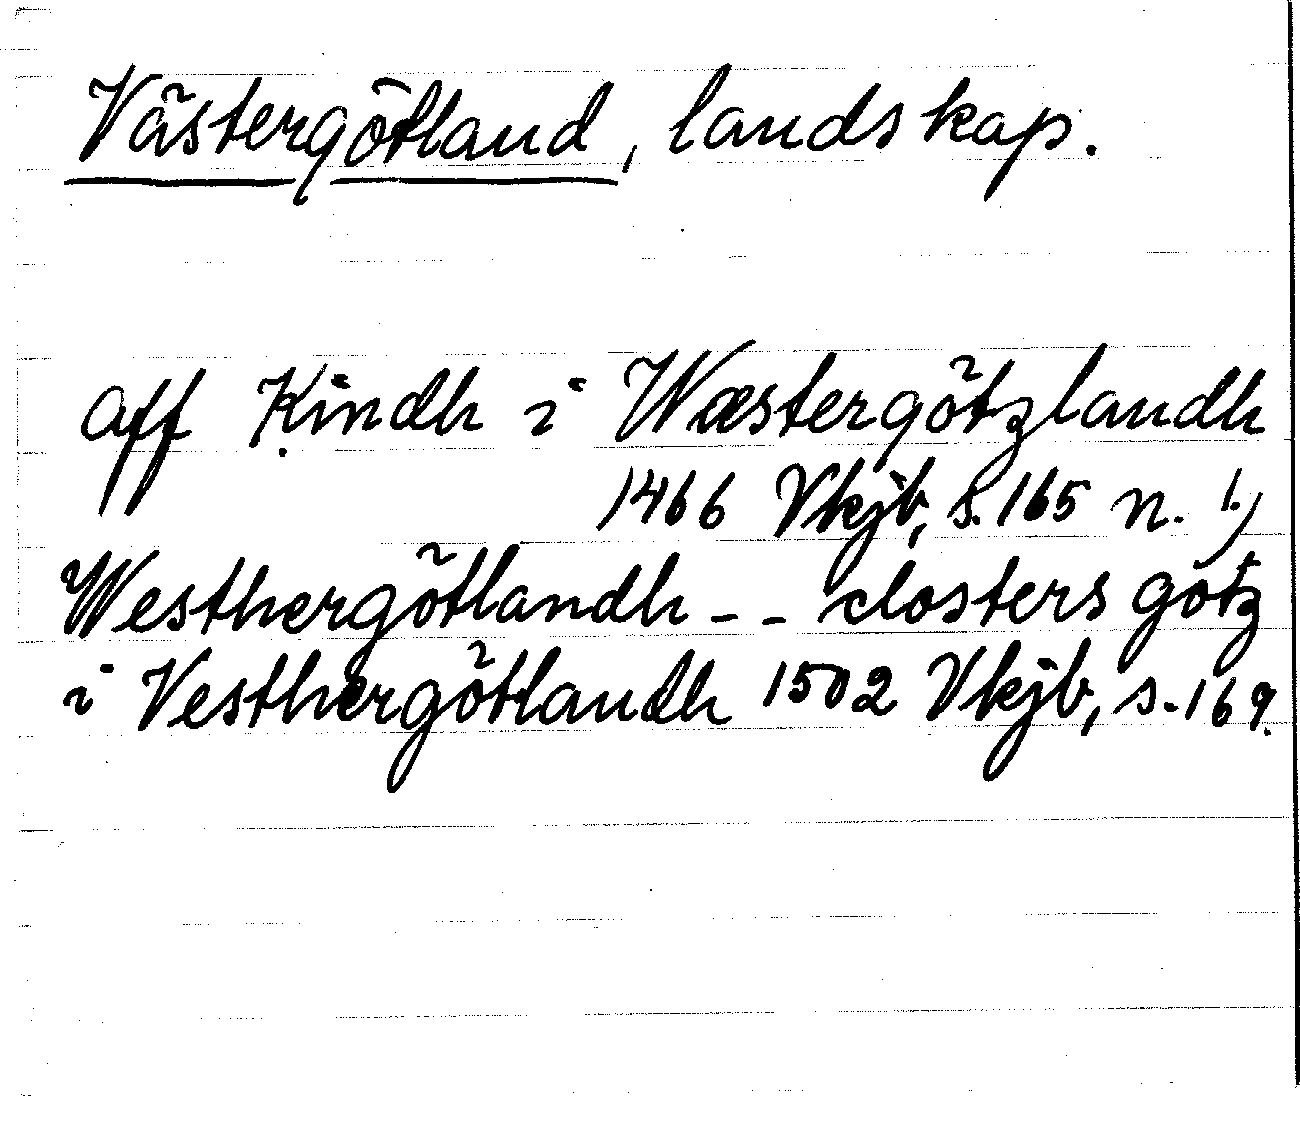 Västergötland, landskap.
aff Kindh i Wæstergötzlandh
1466 Vkjb, s. 165 n. 1)
Westhergötlandh - - closters götz
i Vesthergötlandh 1502 Vkjb, s. 169.